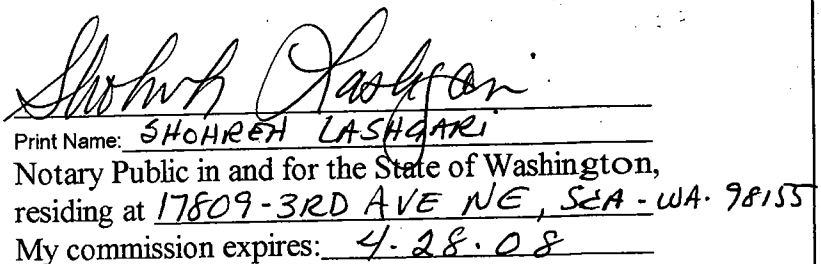 Shohreh Lashgari
Print Name: SHOHREH LASHGARI
Notary Public in and for the State of Washington,
residing at 17809-3RD AVE NE, SEA-WA. 98155
My commission expires: 4.28.08